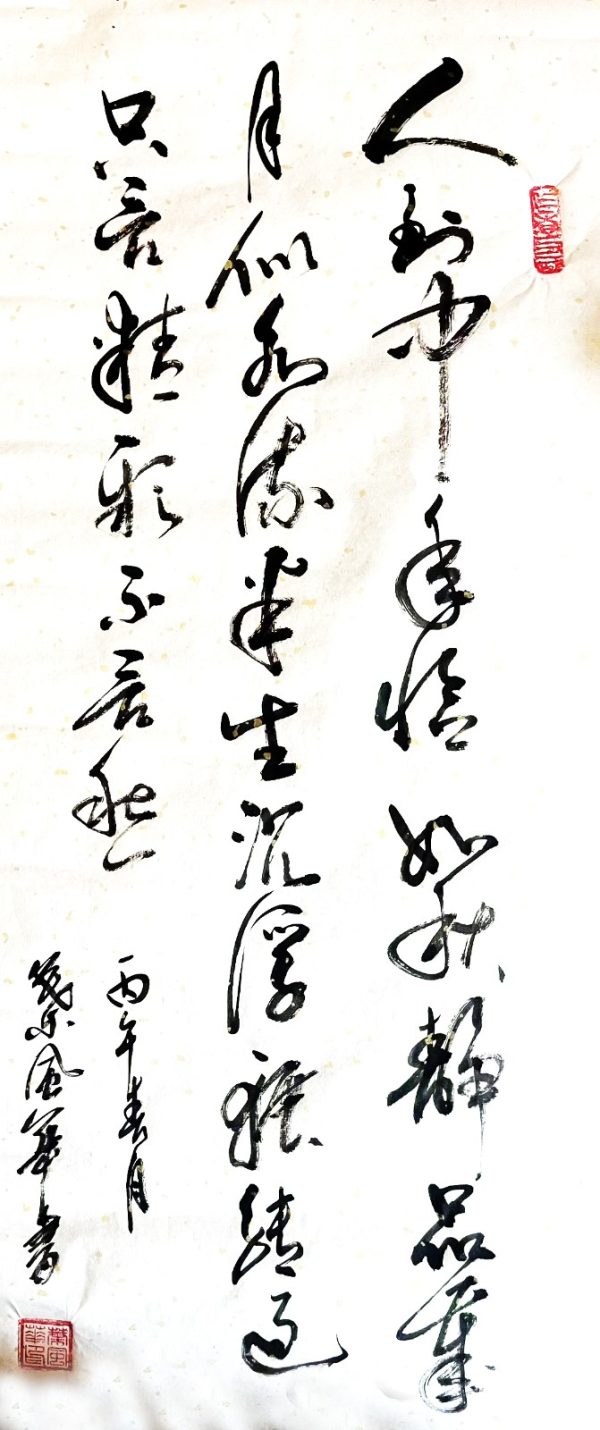 人到中年恰如秋静品岁
月似水流半生沉浮过
只言精彩不言愁
丙午春月
葉风华書